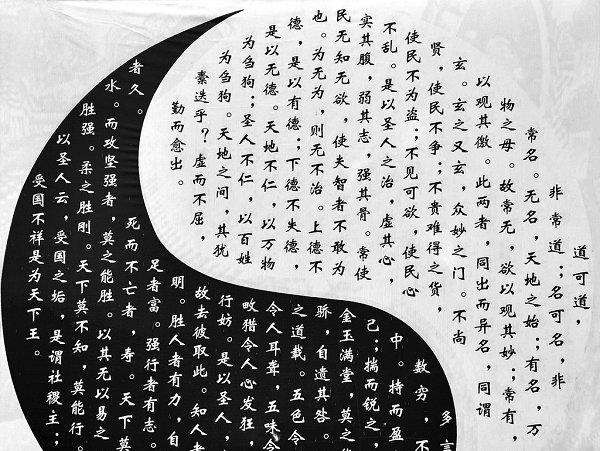 道可道，
非常道；名可名，非
常名。无名，天地之始；有名，万
物之母。故常无，欲以观其妙；常有，
以观其徼。此两者，同出而异名，同谓
玄。玄之又玄，众妙之门。不尚
贤，使民不争；不贵难得之货，
使民不为盗；不见可欲，使民心
不乱。是以圣人之治，虚其心，
实其腹，弱其志，强其骨。常使
民无知无欲，使夫智者不敢为
也。为无为，则无不治。上德不
德，是以有德；下德不失德，
是以无德。天地不仁，以万物
为刍狗；圣人不仁，以百姓
为刍狗。天地之间，其犹
乎？虚而不屈，
勤而愈出。
多言
数穷，不
中。持而盈
已；揣而锐之，
金玉满堂，莫之
骄，自遗其咎。
之道载。五色令
令人耳聋，五味令
畋猎令人心发狂，
行妨。是以圣人，
故去彼取此。知人者
明。胜人者有力，自
足者富。强行者有志。
者久。死而不亡者，寿。天下莫
水。而攻坚强者，莫之能胜。以其无以易之
胜强。柔之胜刚。天下莫不知，莫能行。
以圣人云，受国之垢，是谓社稷主；
受国不祥是为天下王。